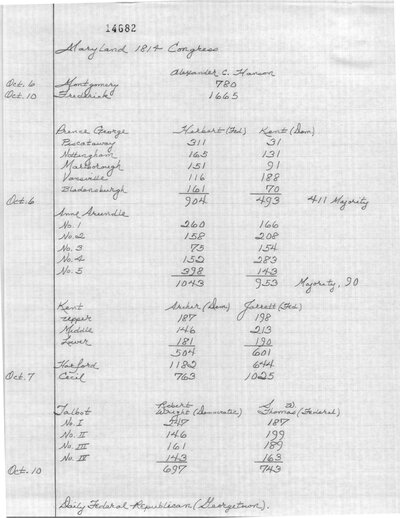 14682
Maryland 1814 Congress
Alexander C. Hanson
Oct. 6 Montgomery 780
Oct. 10 Frederick 1665
Prince George Herbert (Fed) Kent (Dem)
Piscataway 311 31
Nottingham 165 131
Marlborough 151 91
Vansville 116 188
Bladensburgh 161 70
Oct. 6 904 493 411 Majority
Anne Arundle
No. 1 260 166
No. 2 158 208
No. 3 75 154
No. 4 152 283
No. 5 398 143
1043 953 Majority, 90
Kent Archer (Dem) Jarrett (Fed)
Upper 187 198
Middle 146 213
Lower 181 190
504 601
Harford 1182 644
Oct. 7 Cecil 763 1025
Talbot Robert Wright (Democratic) Thomas (Federal)
No. I 247 187
No. II 146 199
No. III 161 189
No. IV 143 163
Oct. 10 697 743
Daily Federal Republican (Georgetown).